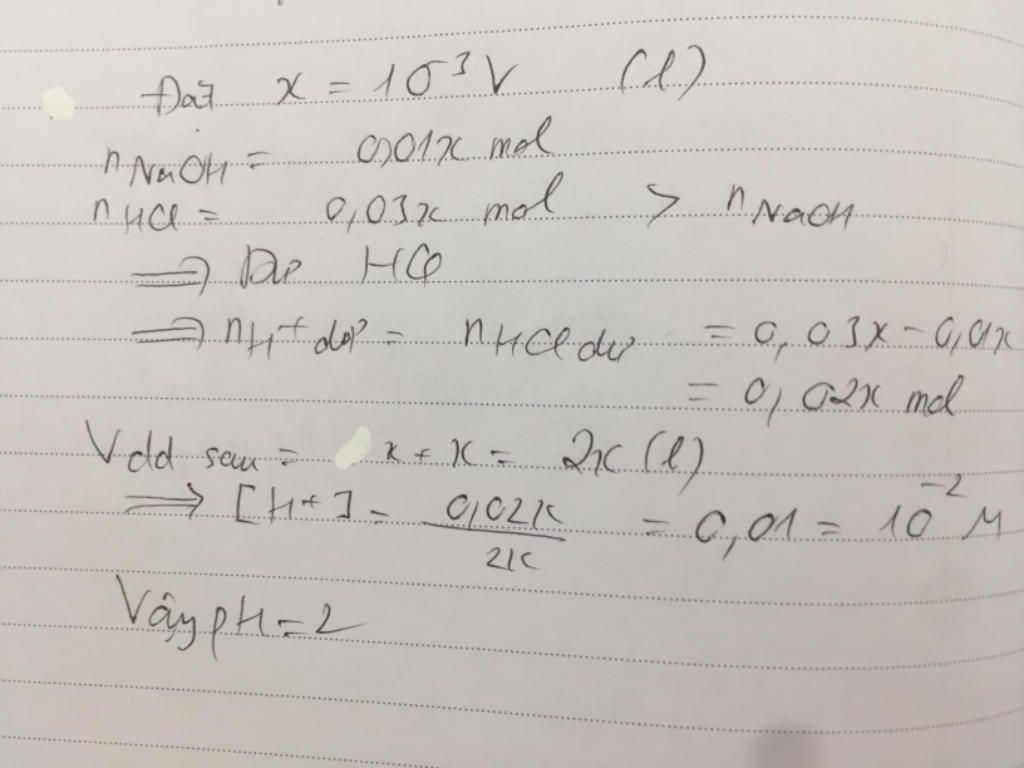 Đặt x = 10⁻³V (l)
nNaOH = 0,01x mol
nHCl = 0,03x mol > nNaOH
⟹ Dư HCl
⟹ nH+ dư = nHCl dư = 0,03x - 0,01x
= 0,02x mol
Vdd sau = x + x = 2x (l)
⟹ [H+] = 0,02x / 2x = 0,01 = 10⁻² M
Vậy pH = 2